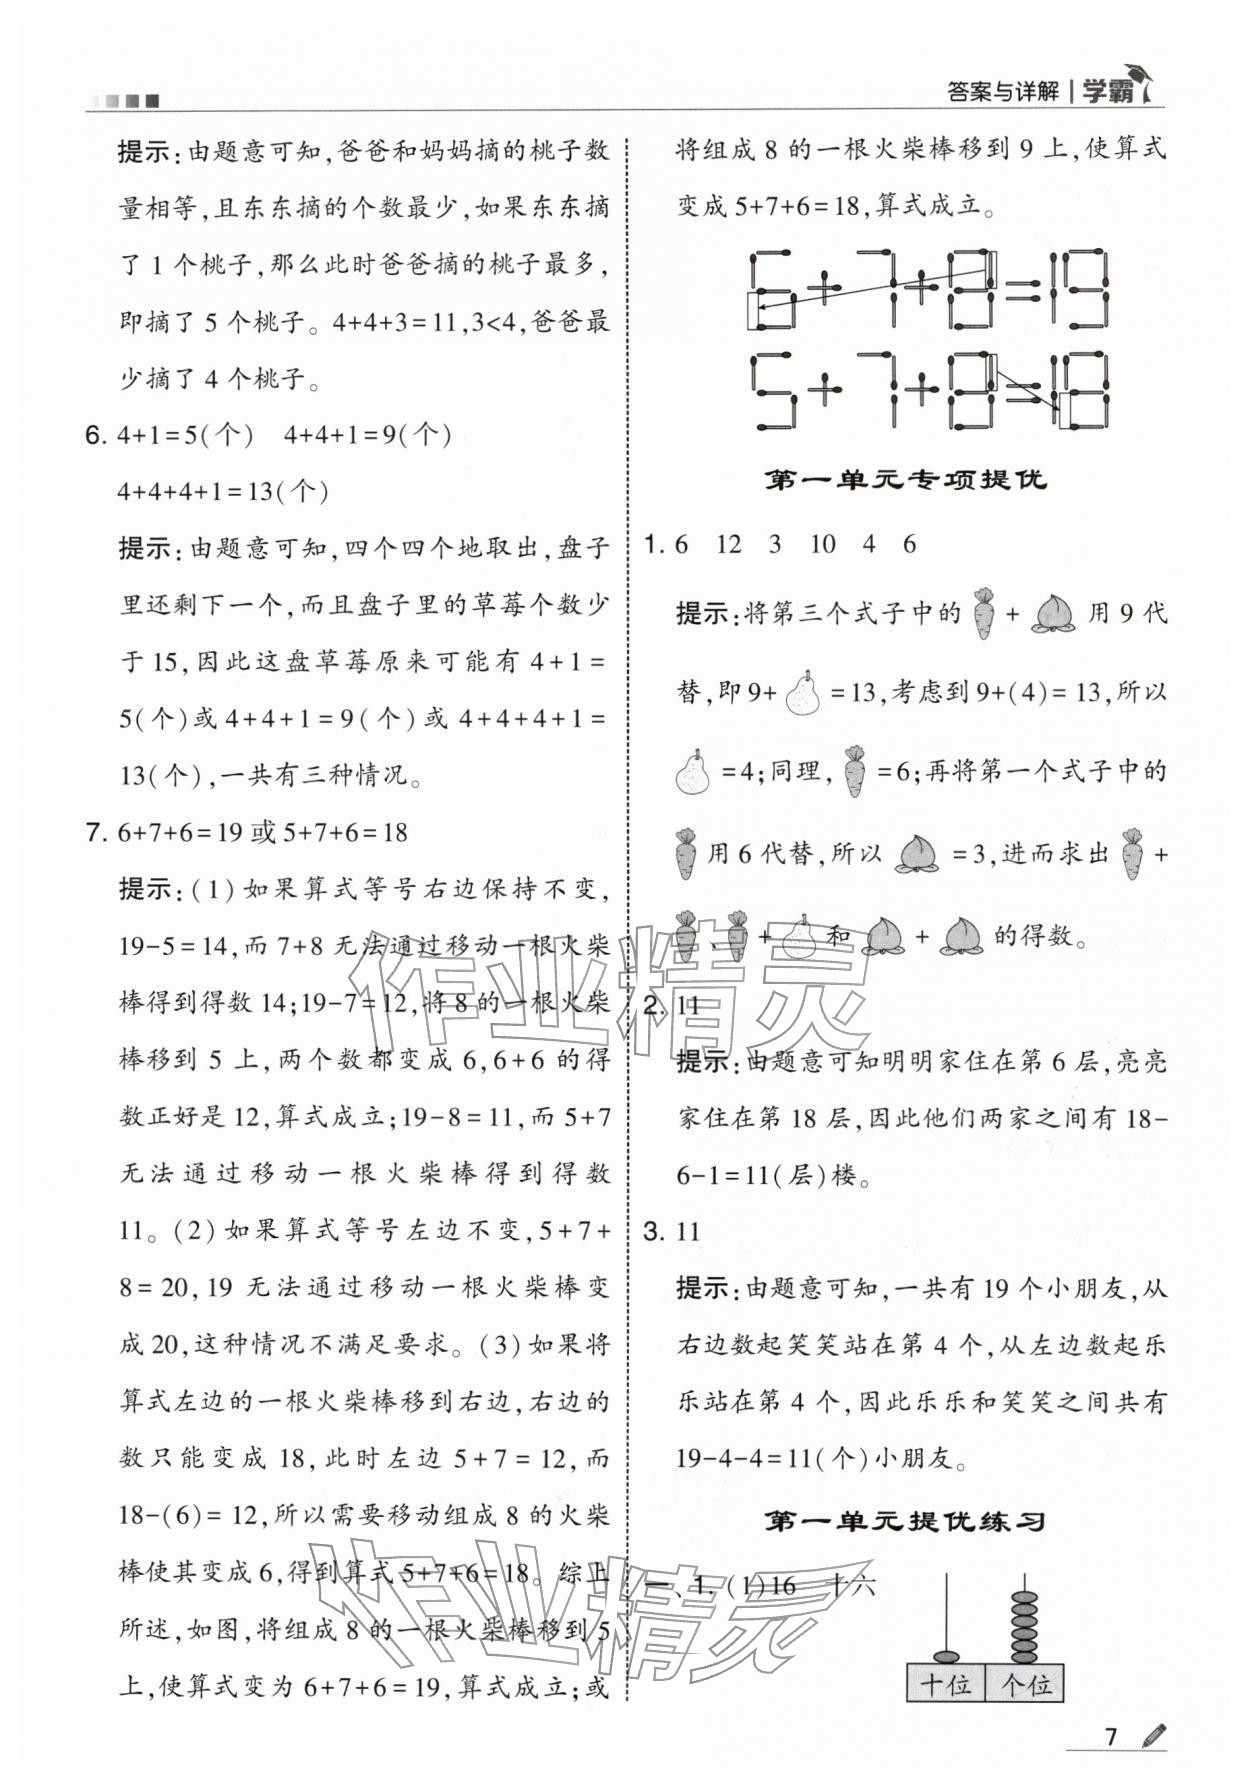 答案与详解 学霸
提示:由题意可知,爸爸和妈妈摘的桃子数
量相等,且东东摘的个数最少,如果东东摘
了1个桃子,那么此时爸爸摘的桃子最多,
即摘了5个桃子。4+4+3=11,3<4,爸爸最
少摘了4个桃子。
6. 4+1=5(个) 4+4+1=9(个)
4+4+4+1=13(个)
提示:由题意可知,四个四个地取出,盘子
里还剩下一个,而且盘子里的草莓个数少
于15,因此这盘草莓原来可能有4+1=
5(个)或4+4+1=9(个)或4+4+4+1=
13(个),一共有三种情况。
7. 6+7+6=19或5+7+6=18
提示:(1)如果算式等号右边保持不变,
19-5=14,而7+8无法通过移动一根火柴
棒得到得数14;19-7=12,将8的一根火柴
棒移到5上,两个数都变成6,6+6的得
数正好是12,算式成立;19-8=11,而5+7
无法通过移动一根火柴棒得到得数
11。(2)如果算式等号左边不变,5+7+
8=20,19无法通过移动一根火柴棒变
成20,这种情况不满足要求。(3)如果将
算式左边的一根火柴棒移到右边,右边的
数只能变成18,此时左边5+7=12,而
18-(6)=12,所以需要移动组成8的火柴
棒使其变成6,得到算式5+7+6=18。综上
所述,如图,将组成8的一根火柴棒移到5
上,使算式变为6+7+6=19,算式成立;或
将组成8的一根火柴棒移到9上,使算式
变成5+7+6=18,算式成立。
5+7+8=19
5+7+8=19
第一单元专项提优
1. 6 12 3 10 4 6
提示:将第三个式子中的 + 用9代
替,即9+ =13,考虑到9+(4)=13,所以
=4;同理, =6;再将第一个式子中的
用6代替,所以 =3,进而求出 +
、 + 和 + 的得数。
2. 11
提示:由题意可知明明家住在第6层,亮亮
家住在第18层,因此他们两家之间有18-
6-1=11(层)楼。
3. 11
提示:由题意可知,一共有19个小朋友,从
右边数起笑笑站在第4个,从左边数起乐
乐站在第4个,因此乐乐和笑笑之间共有
19-4-4=11(个)小朋友。
第一单元提优练习
一、1. (1)16 十六
十位 个位
7
作业精灵
作业精灵